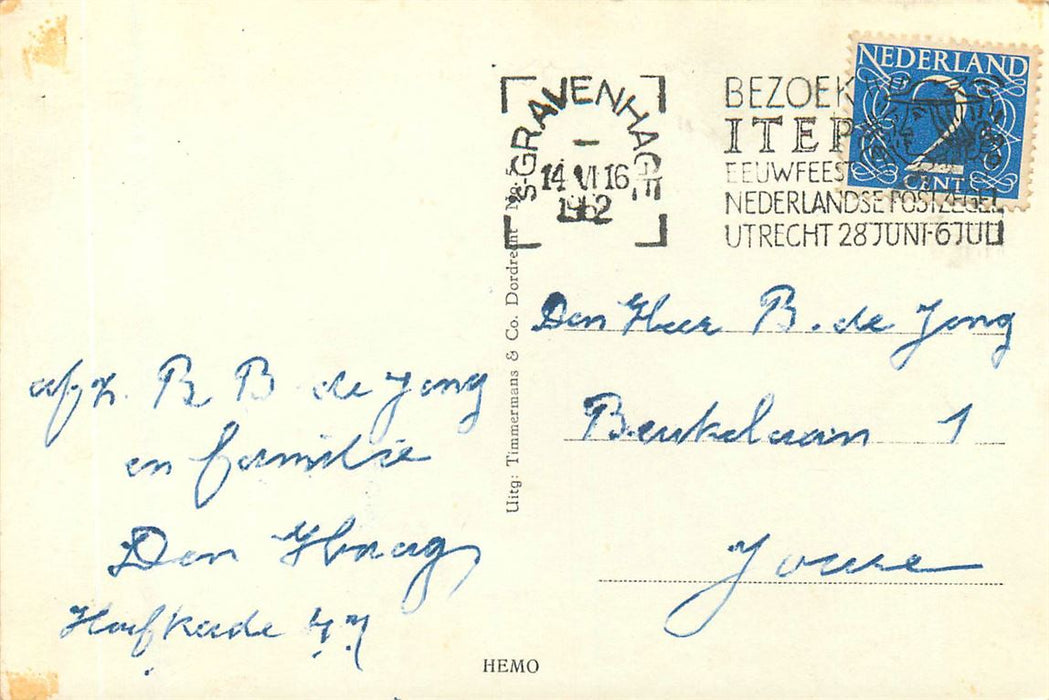 NEDERLAND
2
CENT
'S-GRAVENHAGE
14 VI 16
1952
BEZOEK
ITEP
EEUWFEEST
NEDERLANDSE POSTZEGEL
UTRECHT 28 JUNI-6 JULI
Den Heer B. de Jong
Beukelaan 1
Joure
afz. B B de Jong
en familie
Den Haag
Hoefkade
Uitg: Timmermans & Co. Dordrecht
HEMO